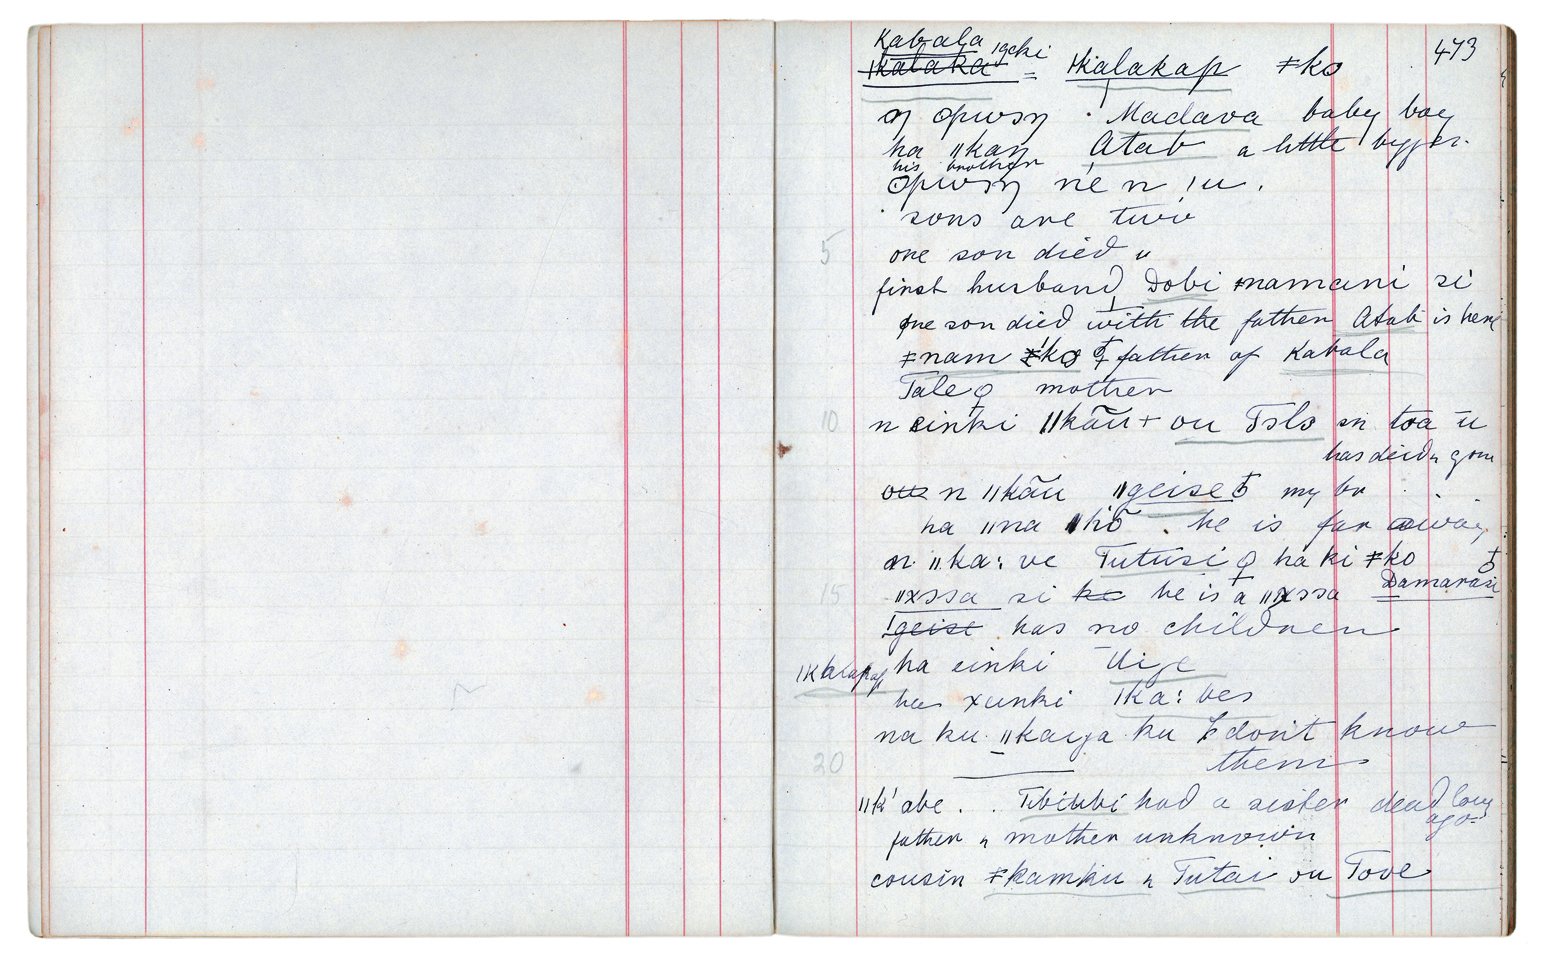 473
Kabala ǀgeki
ǀkalaka = ǀkalakap ǂko
ŋ opwɔŋ Madava baby boy
ha ǁkaŋ Atab a little bigger.
his brother
opwɔŋ ne n !u.
sons are two
5
one son died u
first husband Dobi ǂnamani si
one son died with the father Atab is here
ǂnam ǂko ♂ father of Kabala
Tale ♀ mother
10
n einki ǁkãũ + ou Tslo sn toa ū
has died n gone
ou n ǁkãũ ǁgeise ♂ my br
ha ǁna ǁhõ . he is far away
n ǁka: ve Tutusi ♀ ha ki ǂko ♂
15
ǁxɔsa si he he is a ǁxɔsa Damarasi
!geise has no children
ǀkalapap ha einki Uije
ha xunki ǀka: bes
na ku ǁkaya ku I don't know
20
them
ǁk'abe . . Tbiubi had a sister dead long
ago
father n mother unknown
cousin ǂkamku n Tutai ou Tove